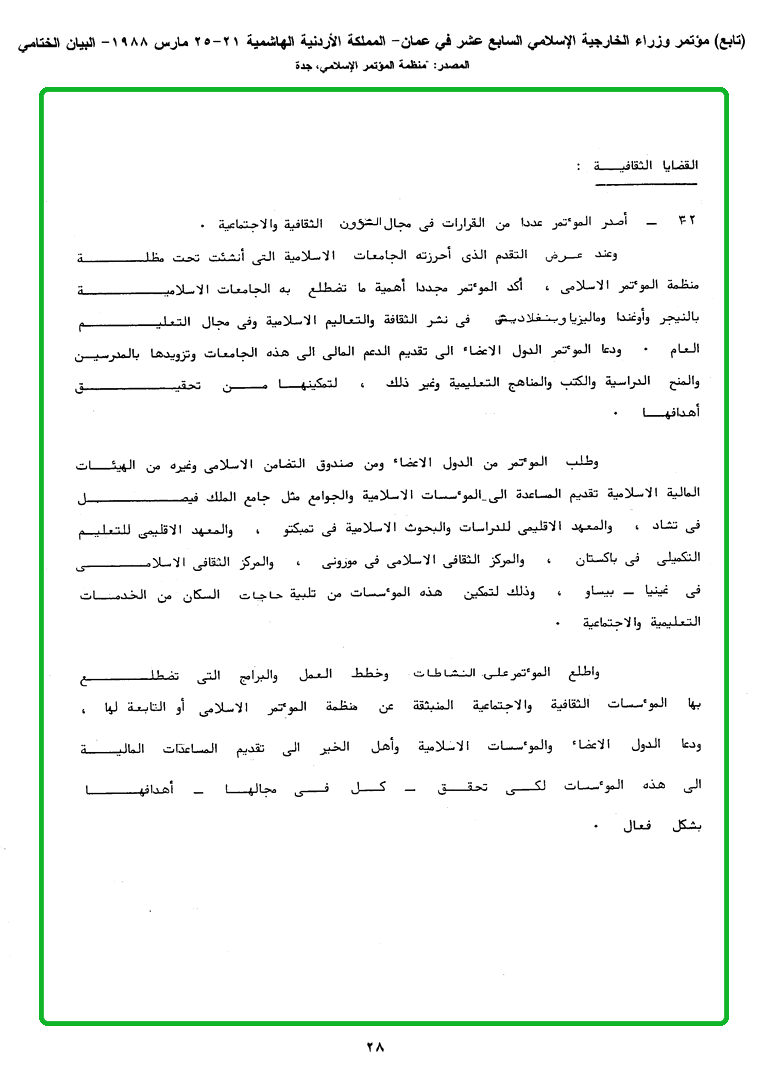 (تابع) مؤتمر وزراء الخارجية الإسلامي السابع عشر في عمان- المملكة الأردنية الهاشمية ٢١-٢٥ مارس ١٩٨٨- البيان الختامي
المصدر: "منظمة المؤتمر الإسلامي، جدة
القضايا الثقافيــة :
٣٢ ــ أصدر الموءتمر عددا من القرارات فى مجال الشؤون الثقافية والاجتماعية ٠
وعند عــرض التقدم الذى أحرزته الجامعات الاسلامية التى أنشئت تحت مظلــــــــة
منظمة الموءتمر الاسلامى ، أكد الموءتمر مجددا أهمية ما تضطلع به الجامعات الاسلاميــــــة
بالنيجر وأوغندا وماليزيا وبنغلاديش فى نشر الثقافة والتعاليم الاسلامية وفى مجال التعليـــــم
العام ٠ ودعا الموءتمر الدول الاعضاء الى تقديم الدعم المالى الى هذه الجامعات وتزويدها بالمدرسيــن
والمنح الدراسية والكتب والمناهج التعليمية وغير ذلك ، لتمكينهــا مــن تحقيــــق
أهدافهــا ٠
وطلب الموءتمر من الدول الاعضاء ومن صندوق التضامن الاسلامى وغيره من الهيئــات
المالية الاسلامية تقديم المساعدة الى الموءسسات الاسلامية والجوامع مثل جامع الملك فيصــــــل
فى تشاد ، والمعهد الاقليمى للدراسات والبحوث الاسلامية فى تمبكتو ، والمعهد الاقليمى للتعليــم
التكميلى فى باكستان ، والمركز الثقافى الاسلامى فى موزونى ، والمركز الثقافى الاسلامـــــــى
فى غينيا ــ بيساو ، وذلك لتمكين هذه الموءسسات من تلبية حاجات السكان من الخدمــات
التعليمية والاجتماعية ٠
واطلع الموءتمر على النشاطات وخطط العمل والبرامج التى تضطلـــــــع
بها الموءسسات الثقافية والاجتماعية المنبثقة عن منظمة الموءتمر الاسلامى أو التابعة لها ،
ودعا الدول الاعضاء والموءسسات الاسلامية وأهل الخير الى تقديم المساعدات الماليـــــة
الى هذه الموءسسات لكــى تحقــق ــ كــل فــى مجالهــا ــ أهدافهــــــا
بشكل فعال ٠
٢٨